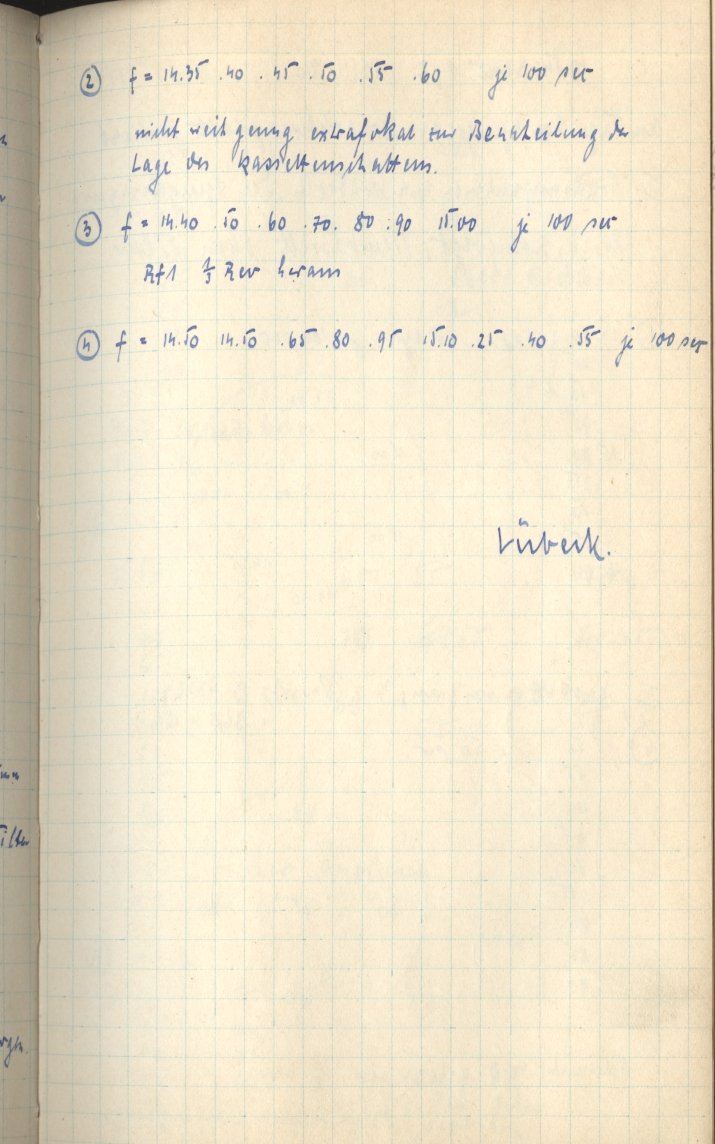 ② f = 14.35 .40 .45 .50 .55 .60 je 100 sec
nicht weit genug extrafokal zur Beurteilung der
Lage des Kassettenschattens.
③ f = 14.40 .50 .60 .70. 80 .90 15.00 je 100 sec
Rf1 1/3 Rev heraus
④ f = 14.50 14.50 .65 .80 .95 15.10 .25 .40 .55 je 100 sec
Lübeck.